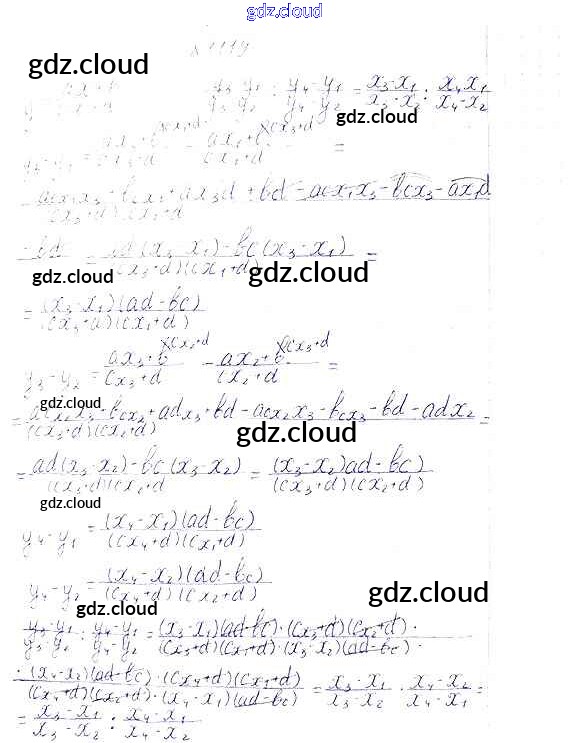 gdz.cloud
№ 1119
gdz.cloud
y₃-y₁ / y₃-y₂ : y₄-y₁ / y₄-y₂ = x₃-x₁ / x₃-x₂ : x₄-x₁ / x₄-x₂
gdz.cloud
= acx₁x₃ + bcx₁ + ax₃d + bd - acx₁x₃ - bcx₃ - ax₁d
(cx₃+d)(cx₁+d)
- bd = ad(x₃-x₁) - bc(x₃-x₁) / (cx₃+d)(cx₁+d) =
gdz.cloud gdz.cloud
= (x₃-x₁)(ad-bc) / (cx₃+d)(cx₁+d)
y₃-y₂ = ax₃+b / cx₃+d \cx₂+d - ax₂+b / cx₂+d \cx₃+d =
gdz.cloud
= acx₂x₃ + bcx₂ + adx₃ + bd - acx₂x₃ - bcx₃ - bd - adx₂ / (cx₃+d)(cx₂+d) =
gdz.cloud
= ad(x₃-x₂) - bc(x₃-x₂) / (cx₃+d)(cx₂+d) = (x₃-x₂)ad-bc) / (cx₃+d)(cx₂+d)
gdz.cloud
y₄-y₁ = (x₄-x₁)(ad-bc) / (cx₄+d)(cx₁+d)
y₄-y₂ = (x₄-x₂)(ad-bc) / (cx₄+d)(cx₂+d)
gdz.cloud gdz.cloud
y₃-y₁ / y₃-y₂ : y₄-y₁ / y₄-y₂ = (x₃-x₁)(ad-bc)·(cx₃+d)(cx₂+d)· / (cx₃+d)(cx₁+d)·(x₃-x₂)(ad-bc)·
· (x₄-x₂)(ad-bc)·(cx₄+d)(cx₁+d) / (cx₄+d)(cx₂+d)·(x₄-x₁)(ad-bc) = x₃-x₁ / x₃-x₂ · x₄-x₂ / x₄-x₁ =
= x₃-x₁ / x₃-x₂ : x₄-x₁ / x₄-x₂